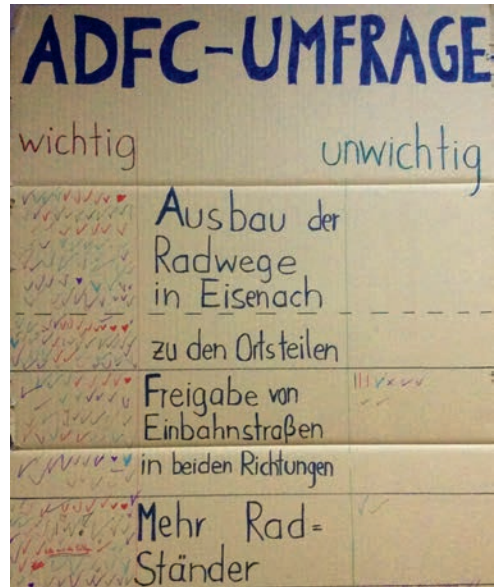 ADFC-UMFRAGE
wichtig
unwichtig
Ausbau der
Radwege
in Eisenach
zu den Ortsteilen
Freigabe von
Einbahnstraßen
in beiden Richtungen
Mehr Rad=
Ständer